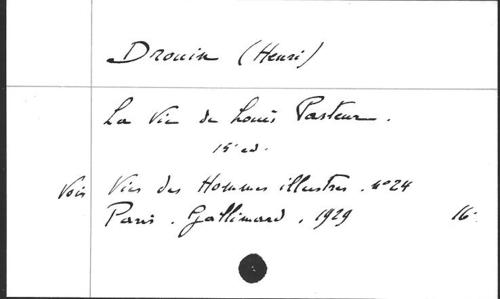 Drouin (Henri)
La Vie de Louis Pasteur.
15e ed.
Voir Vies des Hommes illustres. no 24
Paris. Gallimard. 1929 16.